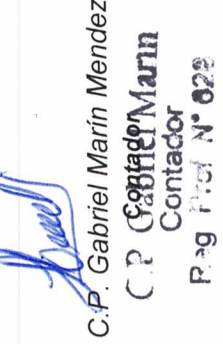 C.P. Gabriel Marín Mendez
Contador
C.P. Gabriel Marín
Contador
Reg Prof N° 628